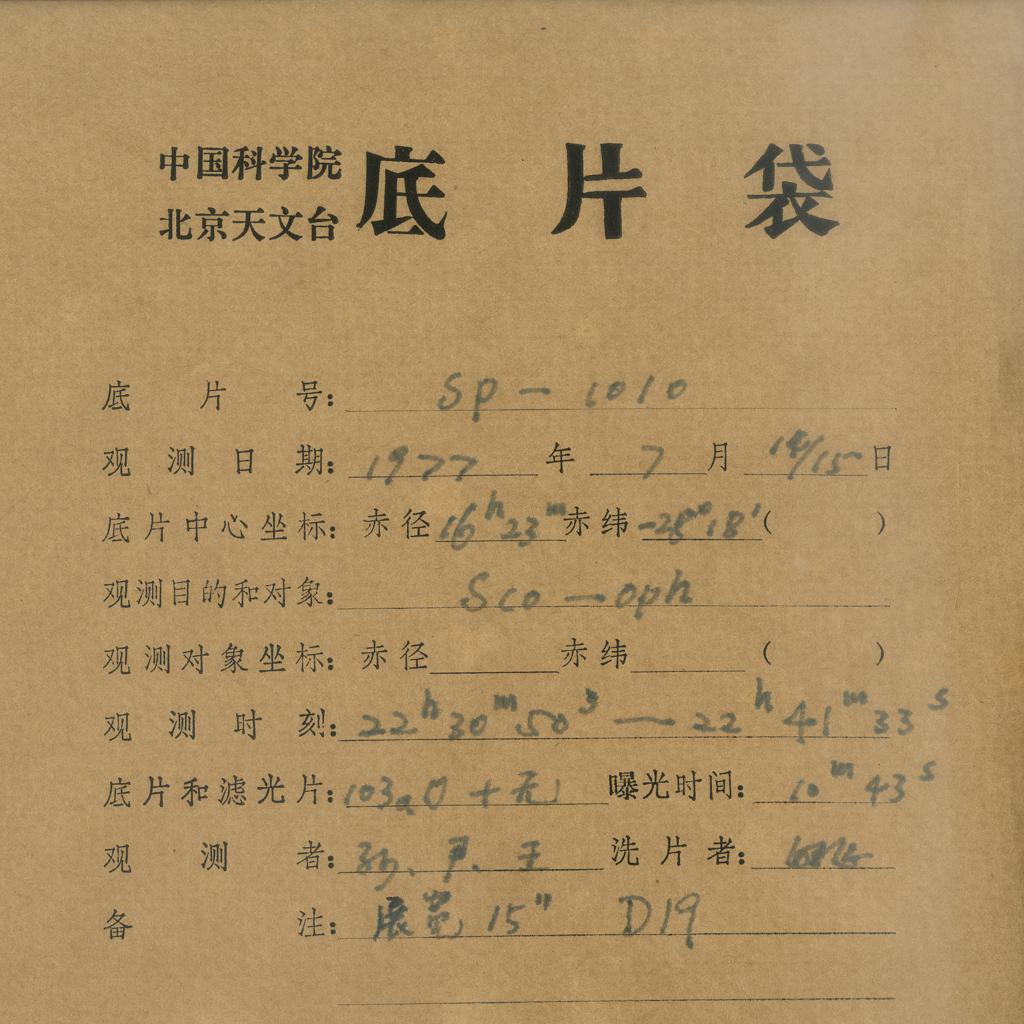 中国科学院
北京天文台
底片袋
底片号：Sp — 1010
观测日期：1977年7月14/15日
底片中心坐标：赤径16ʰ23ᵐ赤纬-28°18′（ ）
观测目的和对象：Sco — oph
观测对象坐标：赤径 赤纬 （ ）
观测时刻：22ʰ30ᵐ50ˢ — 22ʰ41ᵐ33ˢ
底片和滤光片：103aO + 无 曝光时间：10ᵐ43ˢ
观测者：孙、尹、王 洗片者：
备注：展宽 15" D19